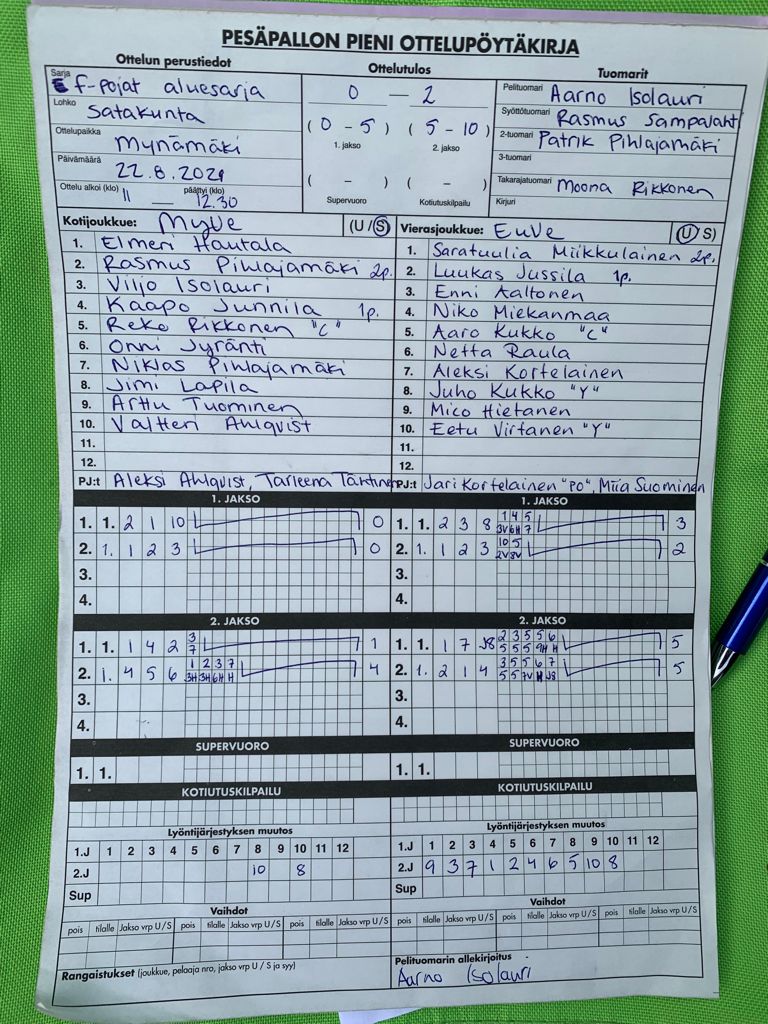 PESÄPALLON PIENI OTTELUPÖYTÄKIRJA
Ottelun perustiedot
Sarja F-pojat aluesarja
Lohko Satakunta
Ottelupaikka Mynämäki
Päivämäärä 22.8.2021
Ottelu alkoi (klo) 11 — päättyi (klo) 12.30
Ottelutulos
0 — 2
( 0 - 5 ) ( 5 - 10 )
1. jakso 2. jakso
( - ) ( - )
Supervuoro Kotiutuskilpailu
Tuomarit
Pelituomari Aarno Isolauri
Syöttötuomari Rasmus Sampalahti
2-tuomari Patrik Pihlajamäki
3-tuomari
Takarajatuomari Moona Rikkonen
Kirjuri
Kotijoukkue: MyVe (U / S)
1. Elmeri Hautala
2. Rasmus Pihlajamäki 2p.
3. Viljo Isolauri
4. Kaapo Junnila 1p.
5. Reko Rikkonen "C"
6. Onni Jyränti
7. Niklas Pihlajamäki
8. Jimi Lapila
9. Arttu Tuominen
10. Valtteri Ahlqvist
11.
12.
PJ:t Aleksi Ahlqvist, Tarleena Tanttinen
Vierasjoukkue: EuVe (U / S)
1. Saratuulia Miikkulainen 2p.
2. Luukas Jussila 1p.
3. Enni Aaltonen
4. Niko Miekanmaa
5. Aaro Kukko "C"
6. Netta Raula
7. Aleksi Kortelainen
8. Juho Kukko "Y"
9. Mico Hietanen
10. Eetu Virtanen "Y"
11.
12.
PJ:t Jari Kortelainen "PO", Miia Suominen
1. JAKSO
1. 1. 2 1 10 0
2. 1. 1 2 3 0
3.
4.
1. JAKSO
1 4 5
1. 1. 2 3 8 3V 6H 7 3
10 5
2. 1. 1 2 3 2V 3V 2
3.
4.
2. JAKSO
3
1. 1. 1 4 2 7 1
1 2 3 7
2. 1. 4 5 6 3H 3H 6H H 4
3.
4.
2. JAKSO
2 3 5 5 6
1. 1. 1 7 J8 5 5 5 9H H 5
3 5 5 6 7
2. 1. 2 1 4 5 5 7V H J8 5
3.
4.
SUPERVUORO
1. 1.
SUPERVUORO
1. 1.
KOTIUTUSKILPAILU
KOTIUTUSKILPAILU
Lyöntijärjestyksen muutos
1.J 1 2 3 4 5 6 7 8 9 10 11 12
2.J 10 8
Sup
Lyöntijärjestyksen muutos
1.J 1 2 3 4 5 6 7 8 9 10 11 12
2.J 9 3 7 1 2 4 6 5 10 8
Sup
Vaihdot
pois tilalle Jakso vrp U/S pois tilalle Jakso vrp U/S pois tilalle Jakso vrp U/S
Vaihdot
pois tilalle Jakso vrp U/S pois tilalle Jakso vrp U/S pois tilalle Jakso vrp U/S
Rangaistukset (joukkue, pelaaja nro, jakso vrp U / S ja syy)
Pelituomarin allekirjoitus
Aarno Isolauri